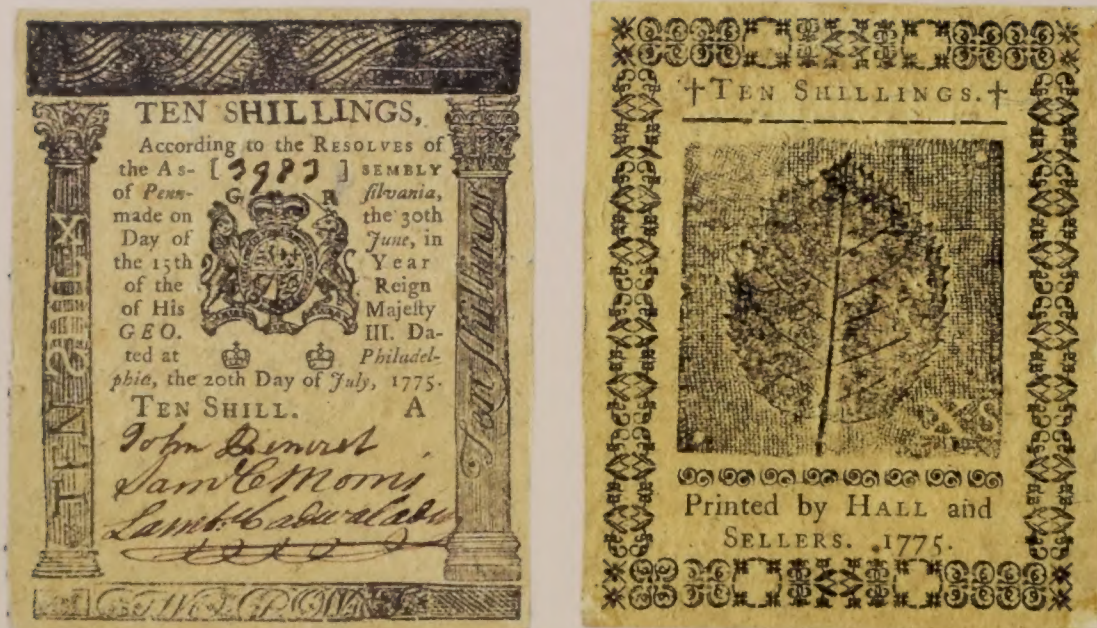 TEN SHILLINGS,
According to the RESOLVES of
the As- [ 3983 ] SEMBLY
of Penn- G R ſilvania,
made on the 30th
Day of June, in
the 15th Year
of the Reign
of His Majeſty
GEO. III. Da-
ted at Philadel-
phia, the 20th Day of July, 1775.
TEN SHILL. A
Saml C Morris
Lamb. Cadwalader
TEN SHIX
Ten ſhillings
†TEN SHILLINGS.†
XS
Printed by HALL and
SELLERS. 1775.